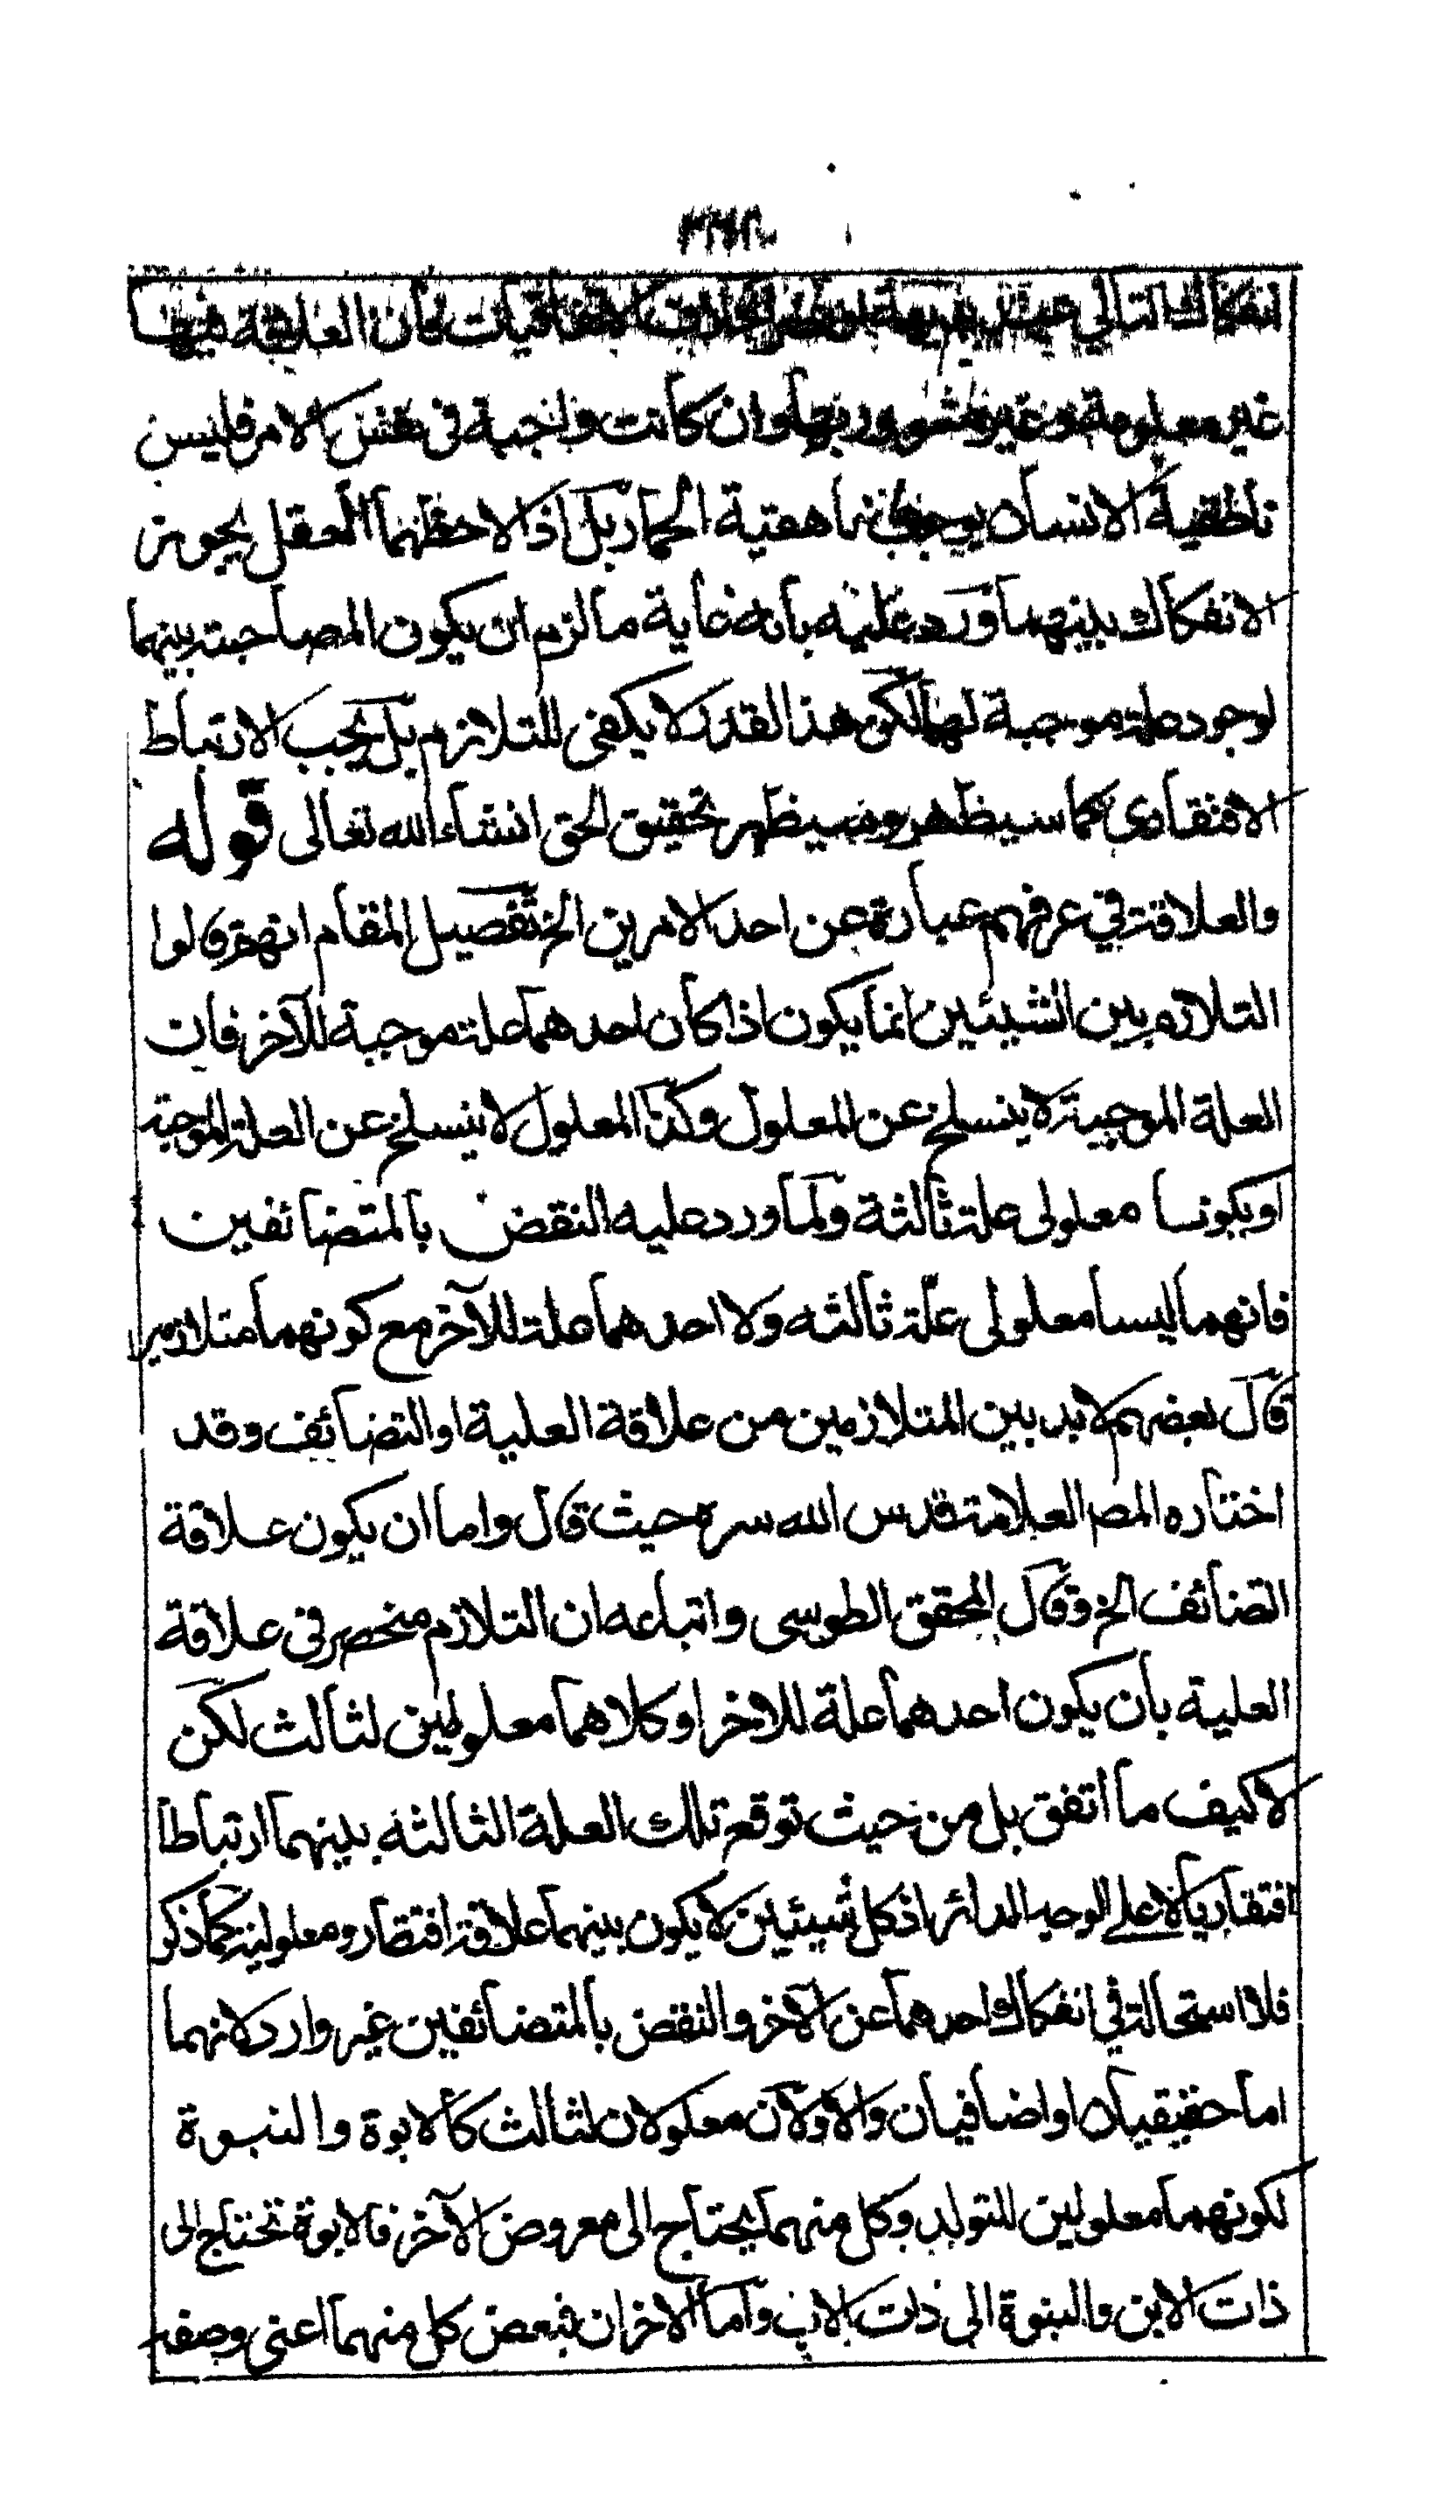 انفكاك التالي عن بخلاف الاتفاقيات فان العلاقة فيها
غير معلومة وغير مشعور بها وان كانت واجبة في نفس الامر فليس
ناطقية الانسان يوجب ناهقية الحمار بل اذا لاحظهما العقل يجوز
الانفكاك بينهما وَرد عليه بانه غاية ما لزم ان يكون المصاحبة بينهما
لوجود علة موجبة لهما لكن هذا القدر لا يكفي للتلازم بل يجب الارتباط
الافتقاري كما سيظهر وسيظهر تحقيق الحق انشاء الله تعالى قوله
والعلاقة في عرفهم عبارة عن احد الامرين الخ تفصيل المقام انهم قالوا
التلازم بين الشيئين انما يكون اذا كان احدهما علة موجبة للآخر فان
العلة الموجبة لا ينسلخ عن المعلول وكذا المعلول لا ينسلخ عن العلة الموجبة
او يكونا معلولي علة ثالثة ولما ورد عليه النقض بالمتضائفين
فانهما ليسا معلولي علّة ثالثه ولا احدهما علة للآخر مع كونهما متلازمين
قال بعضهم لا بد بين المتلازمين من علاقة العلية او التضائف وقد
اختاره المص العلامة قدس الله سره حيث قال واما ان يكون علاقة
التضائف الخ وقال المحقق الطوسي واتباعه ان التلازم منحصر في علاقة
العلية بان يكون احدهما علة للاخر او كلاهما معلولين لثالث لكن
لا كيف ما اتفق بل من حيث توقع تلك العلة الثالثه بينهما ارتباطا
افتقاريا لا على الوجه الدائر اذ كل شيئين لا يكون بينهما علاقة افتقار ومعلولية كما ذكر
فلا استحالة في انفكاك احدهما عن الآخر والنقض بالمتضائفين غير وارد لانهما
اما حقيقيان او اضافيان والاولان معلولان لثالث كالابوة والنبوة
لكونهما معلولين للتوليد وكل منهما يحتاج الى معروض الآخر فالابوة تحتاج الى
ذات الابن والبنوة الى ذات الاب واما الاخران فبعض كل منهما اعني وصفه